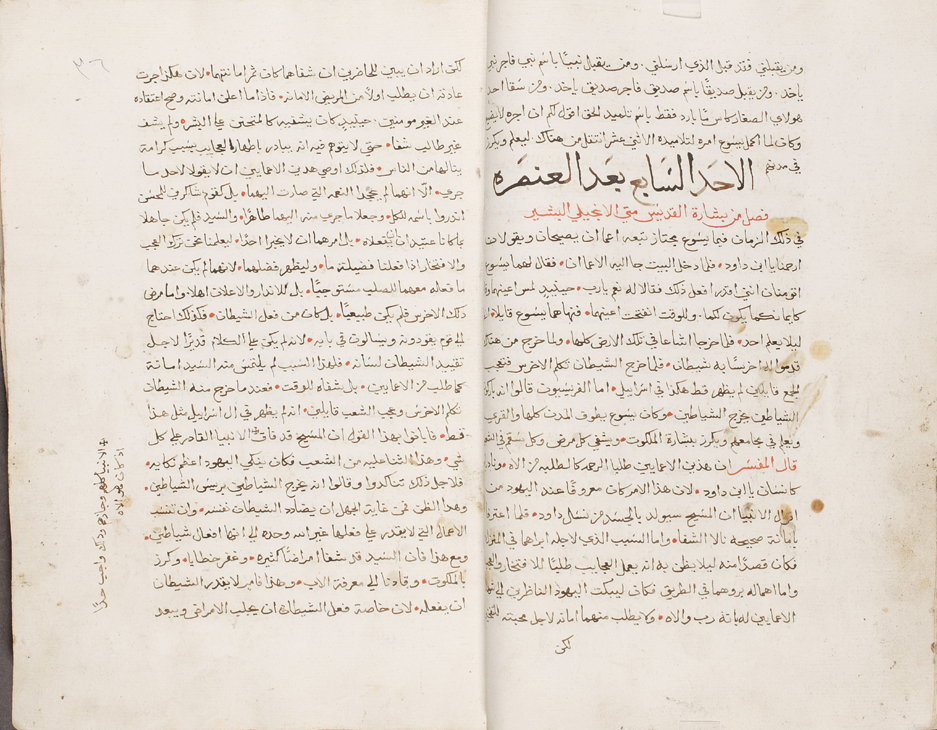 ومن يقبلني فقد قبل الذي ارسلني. ومن يقبل نبيًا باسم نبي فاجر نبي
ياخد. ومن يقبل صديقًا باسم صديق فاجر صديق ياخد. ومن سقا احد
هولاي الصغار كاس ما بارد فقط باسم تلميد الحق اقول لكم ان اجره لا يضيع
وكان لما اكمل يسوع امره لتلاميده الاثني عشر انتقل من هناك ليعلم ويكرز
في مدنهم
الاحد السابع بعد العنصره
فصل من بشارة القديس متي الانجيلي البشير
في ذلك الزمان فيما يسوع مجتاز تبعه اعما ان يصيحان ويقولان
ارحمنا يا ابن داود • فلما دخل البيت جا اليه الاعما ان • فقال لهما يسوع
اتومنان انني اقدر افعل ذلك فقالا له نعم يا رب • حينيدٍ لمس اعينهما
كايمانكما يكون لكما • وللوقت انفتحت اعينهما • فنهاهما يسوع قايلا
ليلا يعلم احد • فلما خرجا اشاعا في تلك الارض كلها • ولما خرج من هناك
قدموا اليه اخرسًا به شيطان • فلما خرج الشيطان تكلم الاخرس فتعجب
الجمع قايلين لم يظهر قط هكذا في اسراييل • اما الفريسيون قالوا انه باركون
الشياطين يخرج الشياطين • وكان يسوع يطوف المدن كلها والقري
ويعلم في مجامعهم ويكرز ببشارة الملكوت • ويشفي كل مرض وكل سقم في الشعب
قال المفسر ان هدين الاعمايين طلبا الرحمه كالطلبه من الاه •
كانسان يا ابن داود • لان هذا الامر كان معروفًا عند اليهود من
اقوال الانبيا ان المسيح سيولد بالجسد من نسل داود • فلما
بامانة صحيحه نالا الشفا • واما السبب الذي لاجله ابراهما في المنزل
فكان قصدًا منه ليلا يظن به انه يعمل العجايب طلبًا للافتخار
واما اهماله بروهما في الطريق فكان ليبكت اليهود الناظرين
الاعمايين • وكان يطلب منهما امانه لاجل محبته
لكن
٣٦
لكن اراد ان يبين للحاضرين ان شفاهما كان ثمر امانتهما • لان هكذا جرت
عادته ان يطلب اولًا من المريض الامانه • فاذا ما اعلن امانته وصح اعتقاده
عند الغير مومنين • حينيدٍ كان يشفيه كالمتحنن علي البشر • ولم يشف
غير طالب شفا • حتي لا يتوهم فيه انه يبادر باظهار العجايب بسبب كرامة
ينالها من الناس • فلذلك اوصي هدين الاعمايين ان لا يقولا لاحد ما
جري • الا انهما لم يجحدا النعمه التي صارت اليهما • بل كقوم شاكرين للمحسن
اندروا باسمه للكل • وجعلا ما جري منه اليهما ظاهرًا • والسيد فلم يكن جاهلا
بما كانا عتيدان ان يفعلاه • بل امرهما ان لا يخبرا احدًا • ليعلمنا نحن ترك العجب
والافتخار اذا فعلنا فضيلة ما • وليظهر فضلهما • لانهما لم يكن عندهما
ما فعله معهما المخلص مستوجبًا • بل للاندار والاعلان اهلا • واما مرض
ذلك الاخرس فلم يكن طبيعيًا • بل كان من فعل الشيطان • فلذلك احتاج
الي قوم يقودونه ويسالون في بابه • لانه لم يكن علي الكلام قديرًا لاجل
تقييد الشيطان لسانه • فلهذا السبب لم يلتمس منه السيد امانة
كما طلب من الاعمايين • بل شفاه للوقت • فعند ما خرج منه الشيطان
تكلم الاخرس وعجب الشعب قايلين • انه لم يظهر في ال اسراييل مثل هدا
قط • فابانوا بهدا القول ان المسيح قد فاق الانبيا القادر علي كل
شي • وهدا الثنا عليه من الشعب فكان ينكي اليهود اعظم نكايه •
فلاجل ذلك تنكدوا وقالوا انه يخرج الشياطين بريس الشياطين •
وهدا الظن في غاية الجهل ان يضادد الشيطان نفسه • وان تنسب
الاعمال التي لا يقدر علي فعلها غير الله وحده الي انها افعال شياطين •
ومع هدا فان السيد قد شفا امراضًا كثيره • وغفر خطايا • وكرز
بالملكوت • وقادنا الي معرفة الاب • وهدا فامر لا يقدر الشيطان
ان يفعله • لان خاصة فعل الشيطان ان يجلب الامراض ويبعد